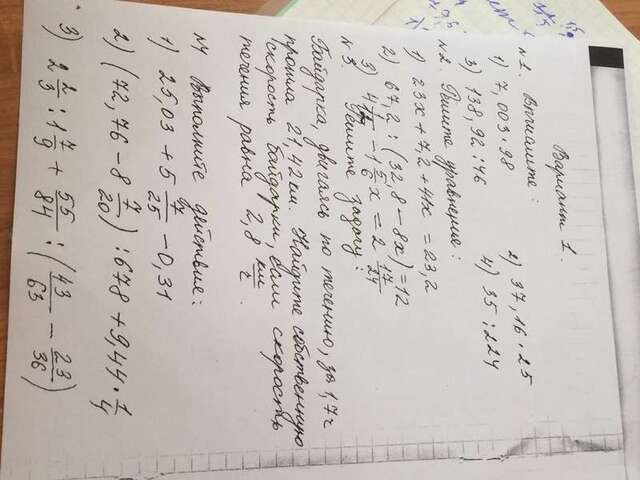 Вариант 1.
№1. Вычислите:
1) 7,003 · 98 2) 37,16 · 25
3) 138,92 : 46 4) 35 : 224
№2. Решите уравнения:
1) 23x + 7,2 + 41x = 23,2
2) 67,2 : (32,8 - 8x) = 12
3) 4 - 1 5/6 x = 2 17/24
№3. Решите задачу:
Байдарка, двигаясь по течению, за 1,7 ч
прошла 21,42 км. Найдите собственную
скорость байдарки, если скорость
течения равна 2,8 км/ч.
№4 Выполните действия:
1) 25,03 + 5 7/25 - 0,31
2) (72,76 - 8 7/20) : 678 + 9,44 · 1/4
3) 2 2/3 : 1 7/9 + 55/84 : (43/63 - 23/36)